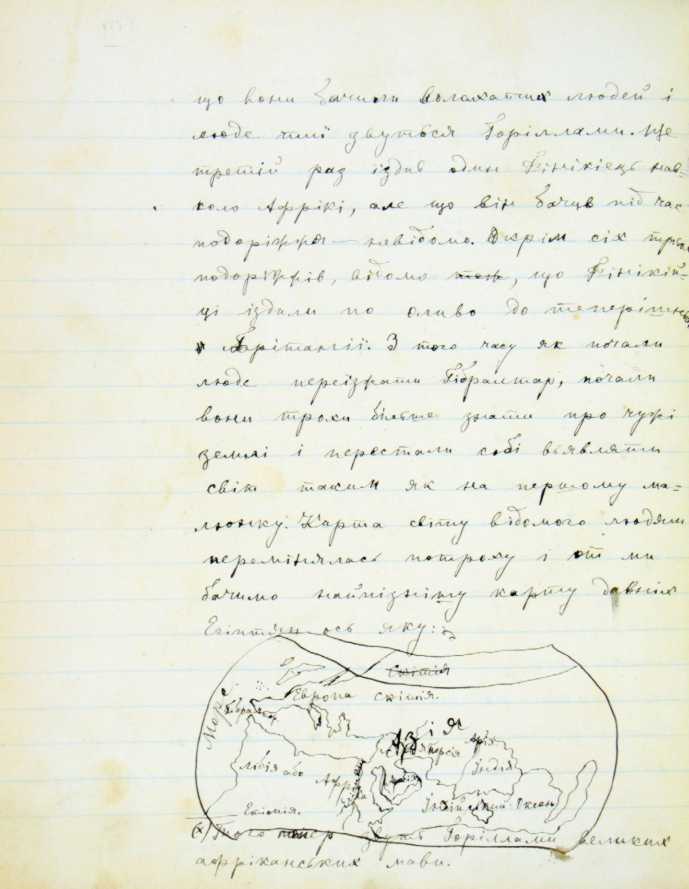 що вони бачили волохатих людей і
люде тиї звуться Горіллами. Ще
третій раз їздив один Фінікієць нав-
коло Афрікі, але що він бачив під час
подоріжжя — невідомо. Окрім сіх трьох
подоріжжів, відомо тож, що Фінікій-
ці їздили по оливо до теперішньої
Брітаніії. З того часу як почали
люде переїзжати Гібралтар, почали
вони трохи більше знати про чужі
землі і перестали собі въявляти
світ таким як на першому ма-
люнку. Карта світу відомого людям
перемінялась потроху і от ми
бачимо найпізнішу карту давніх
Египтян ось яку:
Скитія
Европа скитія.
Гібралтар
Море
Азія
Сірія
Персія
Арія
Індія
Лівія або Африка
Індійський Океан
Египет
(х) Того тепер звуть Горіллами великих
африканських мавп.